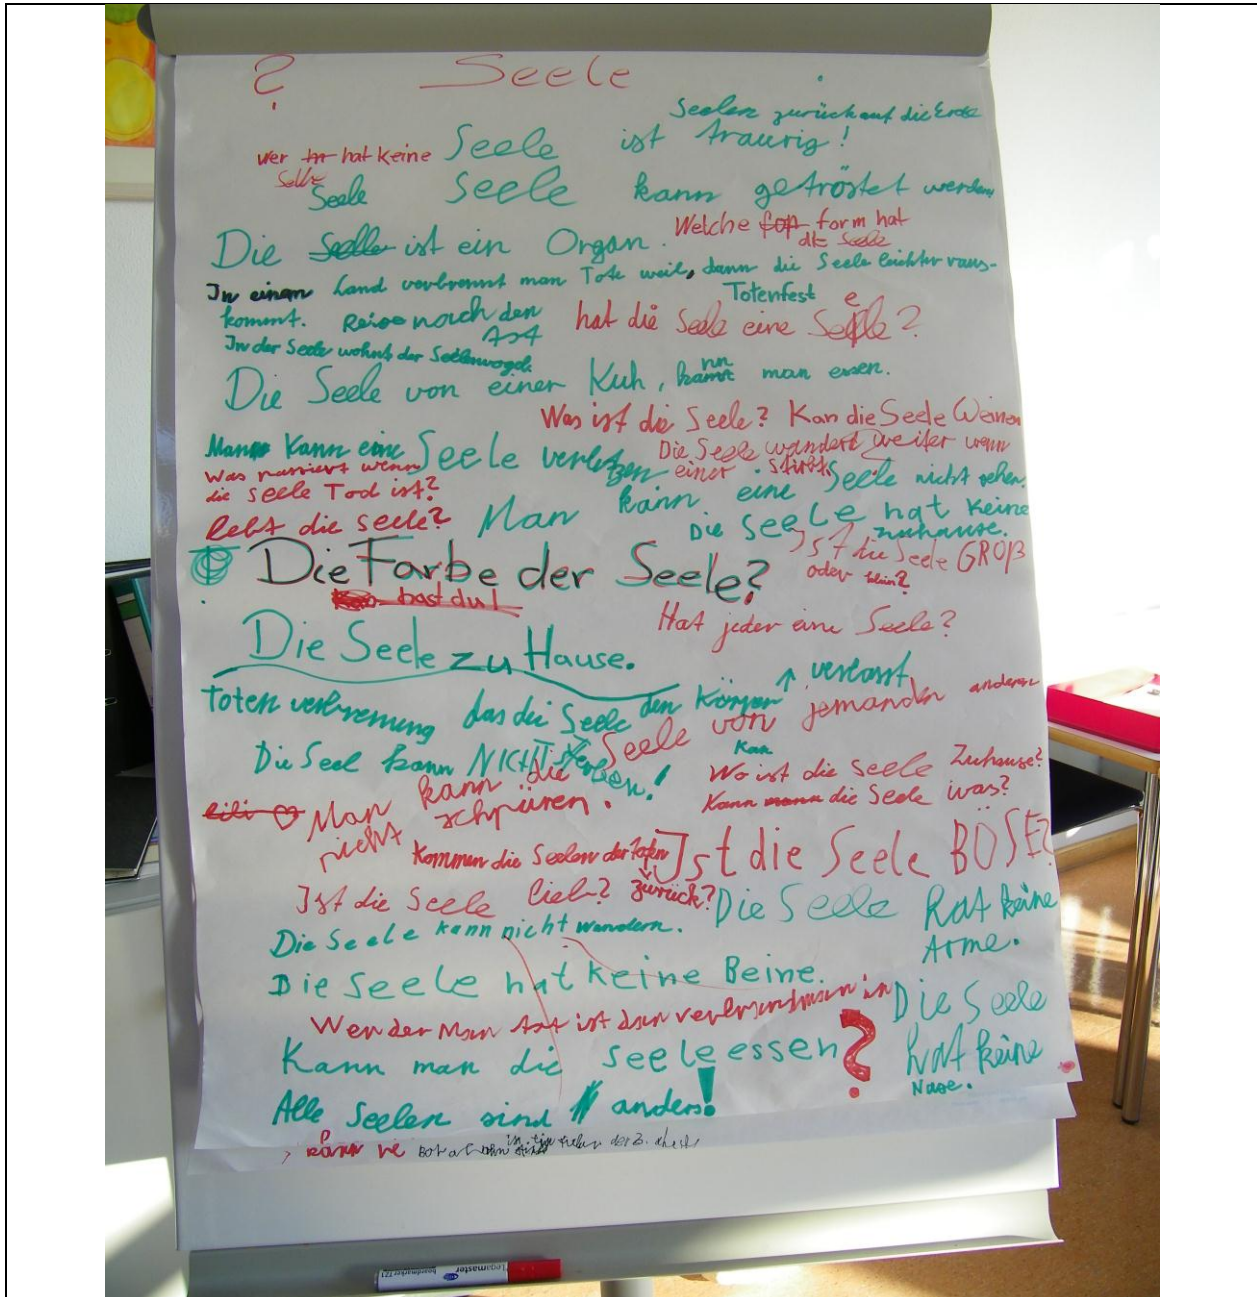 ? Seele
Seelen zurück auf die Erde
wer hat keine Seele ist traurig!
Seele
Seele Seele kann getröstet werden
Die Seelle ist ein Organ. Welche form hat
die Seele
In einem Land verbrennt man Tote weil, dann die Seele leichter raus-
kommt. Reise nach den Tot Totenfest
hat die Seele eine Seele?
In der Seele wohnt der Seelenvogel.
Die Seele von einer Kuh, kann man essen.
Was ist die Seele? Kan die Seele Weinen
Man kann eine Seele verletzen
Die Seele wandert weiter wenn
einer stirbt.
Was passiert wenn
die Seele Tod ist?
lebt die Seele?
Man kann eine Seele nicht sehen.
Die Seele hat keine
zuhause.
Die Farbe der Seele?
Ist die Seele GROß
oder klein?
hast du!
Hat jeder eine Seele?
Die Seele zu Hause.
Toten verbrennung das die Seele den Körper verlasst
Seele von jemanden anderen
Die Seel kann NICHT sterben!
Kan
Wo ist die Seele Zuhause?
Kann mann die Seele was?
lili Man kann die
nicht schpüren.
Kommen die Seelen der Toten
zurück?
Ist die Seele BÖSE?
Ist die Seele lieb?
Die Seele hat keine
Arme.
Die Seele kann nicht wandern.
Die Seele hat keine Beine.
Wen der Man tot ist dan
Die Seele
hat keine
Nase.
Kann man die seele essen?
Alle Seelen sind anders!
kann